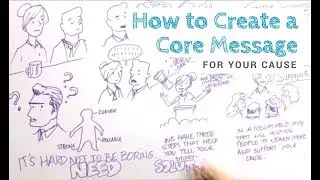 How to Create a
Core Message
FOR YOUR CAUSE
CLEVER
STRONG
VALUABLE
IT'S HARD NOT TO BE BORING.
NEED
WE HAVE THREE
STEPS THAT HELP
YOU TELL YOUR
STORY
IN A RELATABLE WAY
THAT WILL INSPIRE
PEOPLE TO LEARN MORE
AND SUPPORT YOUR
CAUSE.